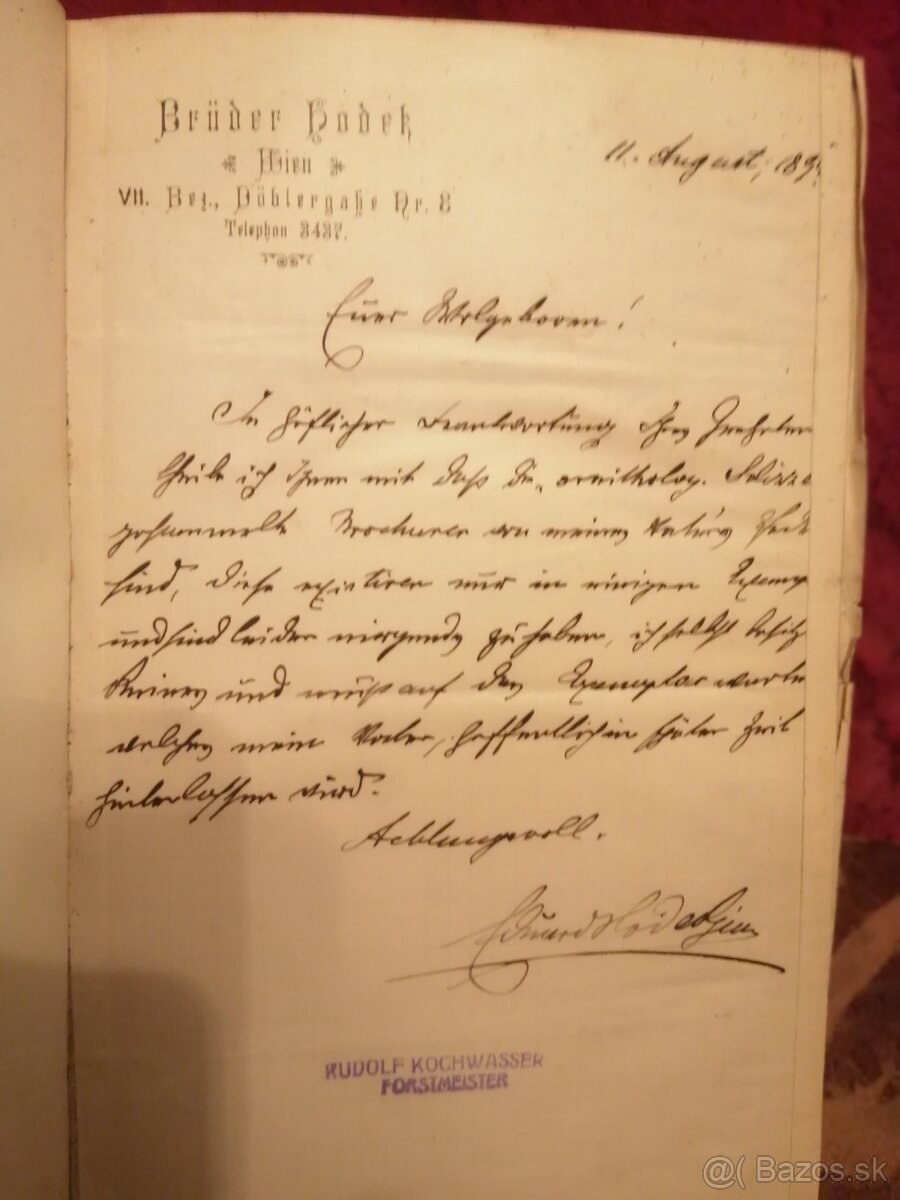 Brüder Hodek
Wien
VII. Bez., Döblergaße Nr. 8
Telephon 3437.
11. August, 189
Euer Wolgeboren!
In höflicher Beantwortung Ihres Geehrten
theile ich Ihnen mit daß die „ornitholog. Skizze
gesammelte Brochuren von meines Vaters
sind, diese existiren nur in einigen Exemp
und sind leider nirgends zu haben, ich selbst besitz
keines und muß auf das Exemplar warte
welches mein Vater, hoffentlich in später Zeit
hinterlassen wird.
Achtungsvoll.
Eduard Hodek jun
RUDOLF KOCHWASSER
FORSTMEISTER
@( Bazos.sk